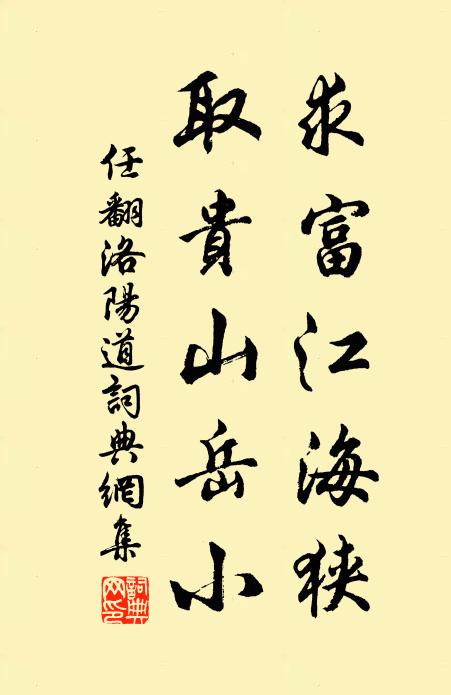 求富江海狹
取貴山岳小
任翻洛陽道詞典網集
詞典網印